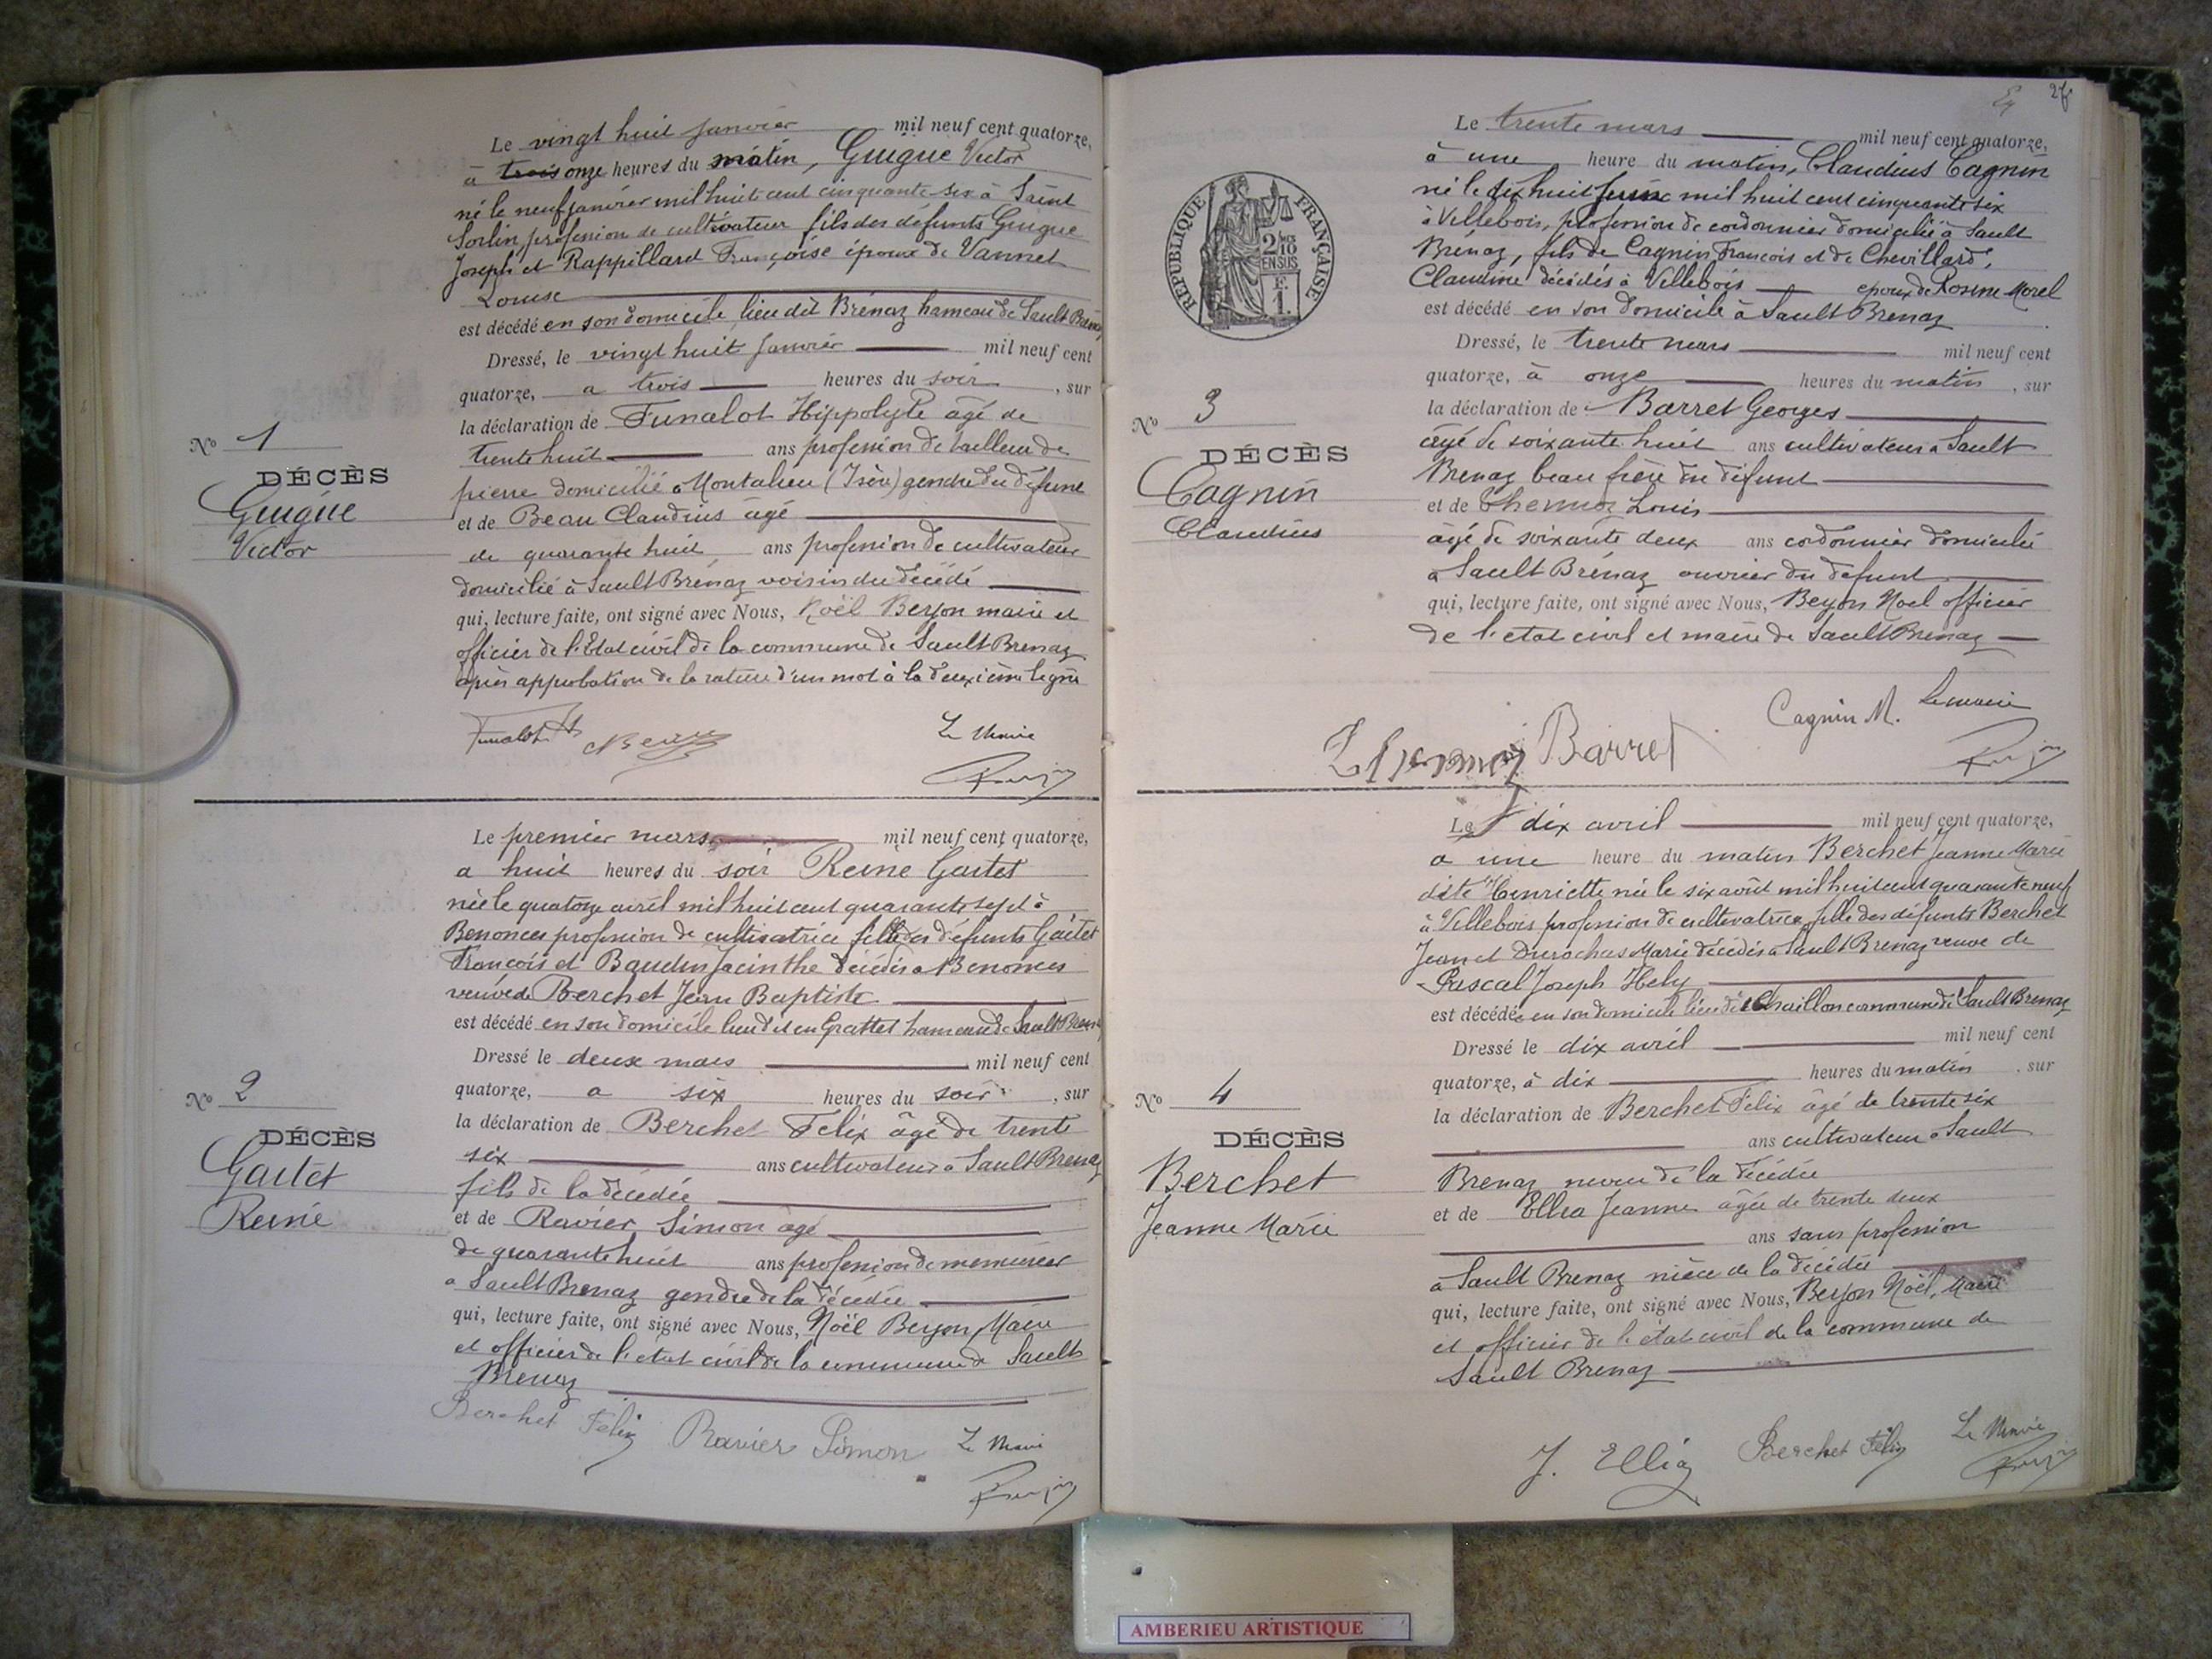 Le vingt huit janvier mil neuf cent quatorze,
à trois onze heures du matin, Guigue Victor
né le neuf janvier mil huit cent cinquante six à Saint
Sorlin, profession de cultivateur fils des défunts Guigue
Joseph et Rappillard Françoise époux de Vannet
Louise
est décédé en son domicile, lieu dit Brénaz hameau de Sault Brénaz
Dressé, le vingt huit janvier mil neuf cent
quatorze, a trois heures du soir, sur
la déclaration de Funalot Hippolyte âgé de
trente huit ans profession de tailleur de
pierre domicilié à Montalieu (Isère) gendre du défunt
et de Beau Claudius âgé
de quarante huit ans profession de cultivateur
domicilié à Sault Brénaz voisin du décédé
qui, lecture faite, ont signé avec Nous, Noël Beyon maire et
officier de l'Etat civil de la commune de Sault Brenaz
après approbation de la rature d'un mot à la deuxième ligne
Nº 1
DÉCÈS
Guigue
Victor
Funalot H Beau Le Maire
Le premier mars mil neuf cent quatorze,
a huit heures du soir Reine Gaitet
née le quatorze avril mil huit cent quarante sept à
Benonces profession de cultivatrice fille des défunts Gaitet
François et Baudin Jacinthe décédés a Benonces
veuve de Berchet Jean Baptiste
est décédé en son domicile lieu dit en Grattet hameau de Sault Brenaz
Dressé le deux mars mil neuf cent
quatorze, a six heures du soir, sur
la déclaration de Berchet Félix âgé de trente
six ans cultivateur à Sault Brenaz
fils de la décédée
et de Ravier Simon âgé
de quarante huit ans profession de menuisier
a Sault Brenaz gendre de la décédée
qui, lecture faite, ont signé avec Nous, Noël Beyon, Maire
et officier de l'état civil de la commune de Sault
Brenaz
Nº 2
DÉCÈS
Gaitet
Reine
Berchet Félix Ravier Simon Le Maire
27
Le trente mars mil neuf cent quatorze,
à une heure du matin, Claudius Cagnin
né le dix huit juin mil huit cent cinquante six
à Villebois, profession de cordonnier domicilié à Sault
Brénaz, fils de Cagnin François et de Chevillard,
Claudine décédés à Villebois époux de Rosine Morel
est décédé en son domicile à Sault Brenaz
Dressé, le trente mars mil neuf cent
quatorze, à onze heures du matin, sur
la déclaration de Barret Georges
âgé de soixante huit ans cultivateur a Sault
Brenaz beau frère du défunt
et de Thermoz Louis
âgé de soixante deux ans cordonnier domicilié
à Sault Brénaz ouvrier du défunt
qui, lecture faite, ont signé avec Nous, Beyon Noel officier
de l'état civil et maire de Sault Brenaz
RÉPUBLIQUE FRANÇAISE
2/10 EN SUS
F. 1.
Nº 3
DÉCÈS
Cagnin
Claudius
Thermoz Barret Cagnin M. Le maire
Le dix avril mil neuf cent quatorze,
a une heure du matin Berchet Jeanne Marie
dite Henriette née le six août mil huit cent quarante neuf
à Villebois profession de cultivatrice, fille des défunts Berchet
Jean et Durochas Marie décédés a Sault Brenaz veuve de
Pascal Joseph Hely
est décédée en son domicile lieu dit Chaillon commune de Sault Brenaz
Dressé le dix avril mil neuf cent
quatorze, à dix heures du matin, sur
la déclaration de Berchet Félix âgé de trente six
ans cultivateur à Sault
Brenaz neveu de la décédée
et de Ellia Jeanne âgée de trente deux
ans sans profession
à Sault Brenaz nièce de la décédée
qui, lecture faite, ont signé avec Nous, Beyon Noël, Maire
et officier de l'état civil de la commune de
Sault Brenaz
Nº 4
DÉCÈS
Berchet
Jeanne Marie
J. Ellia Berchet Félix Le Maire
AMBERIEU ARTISTIQUE